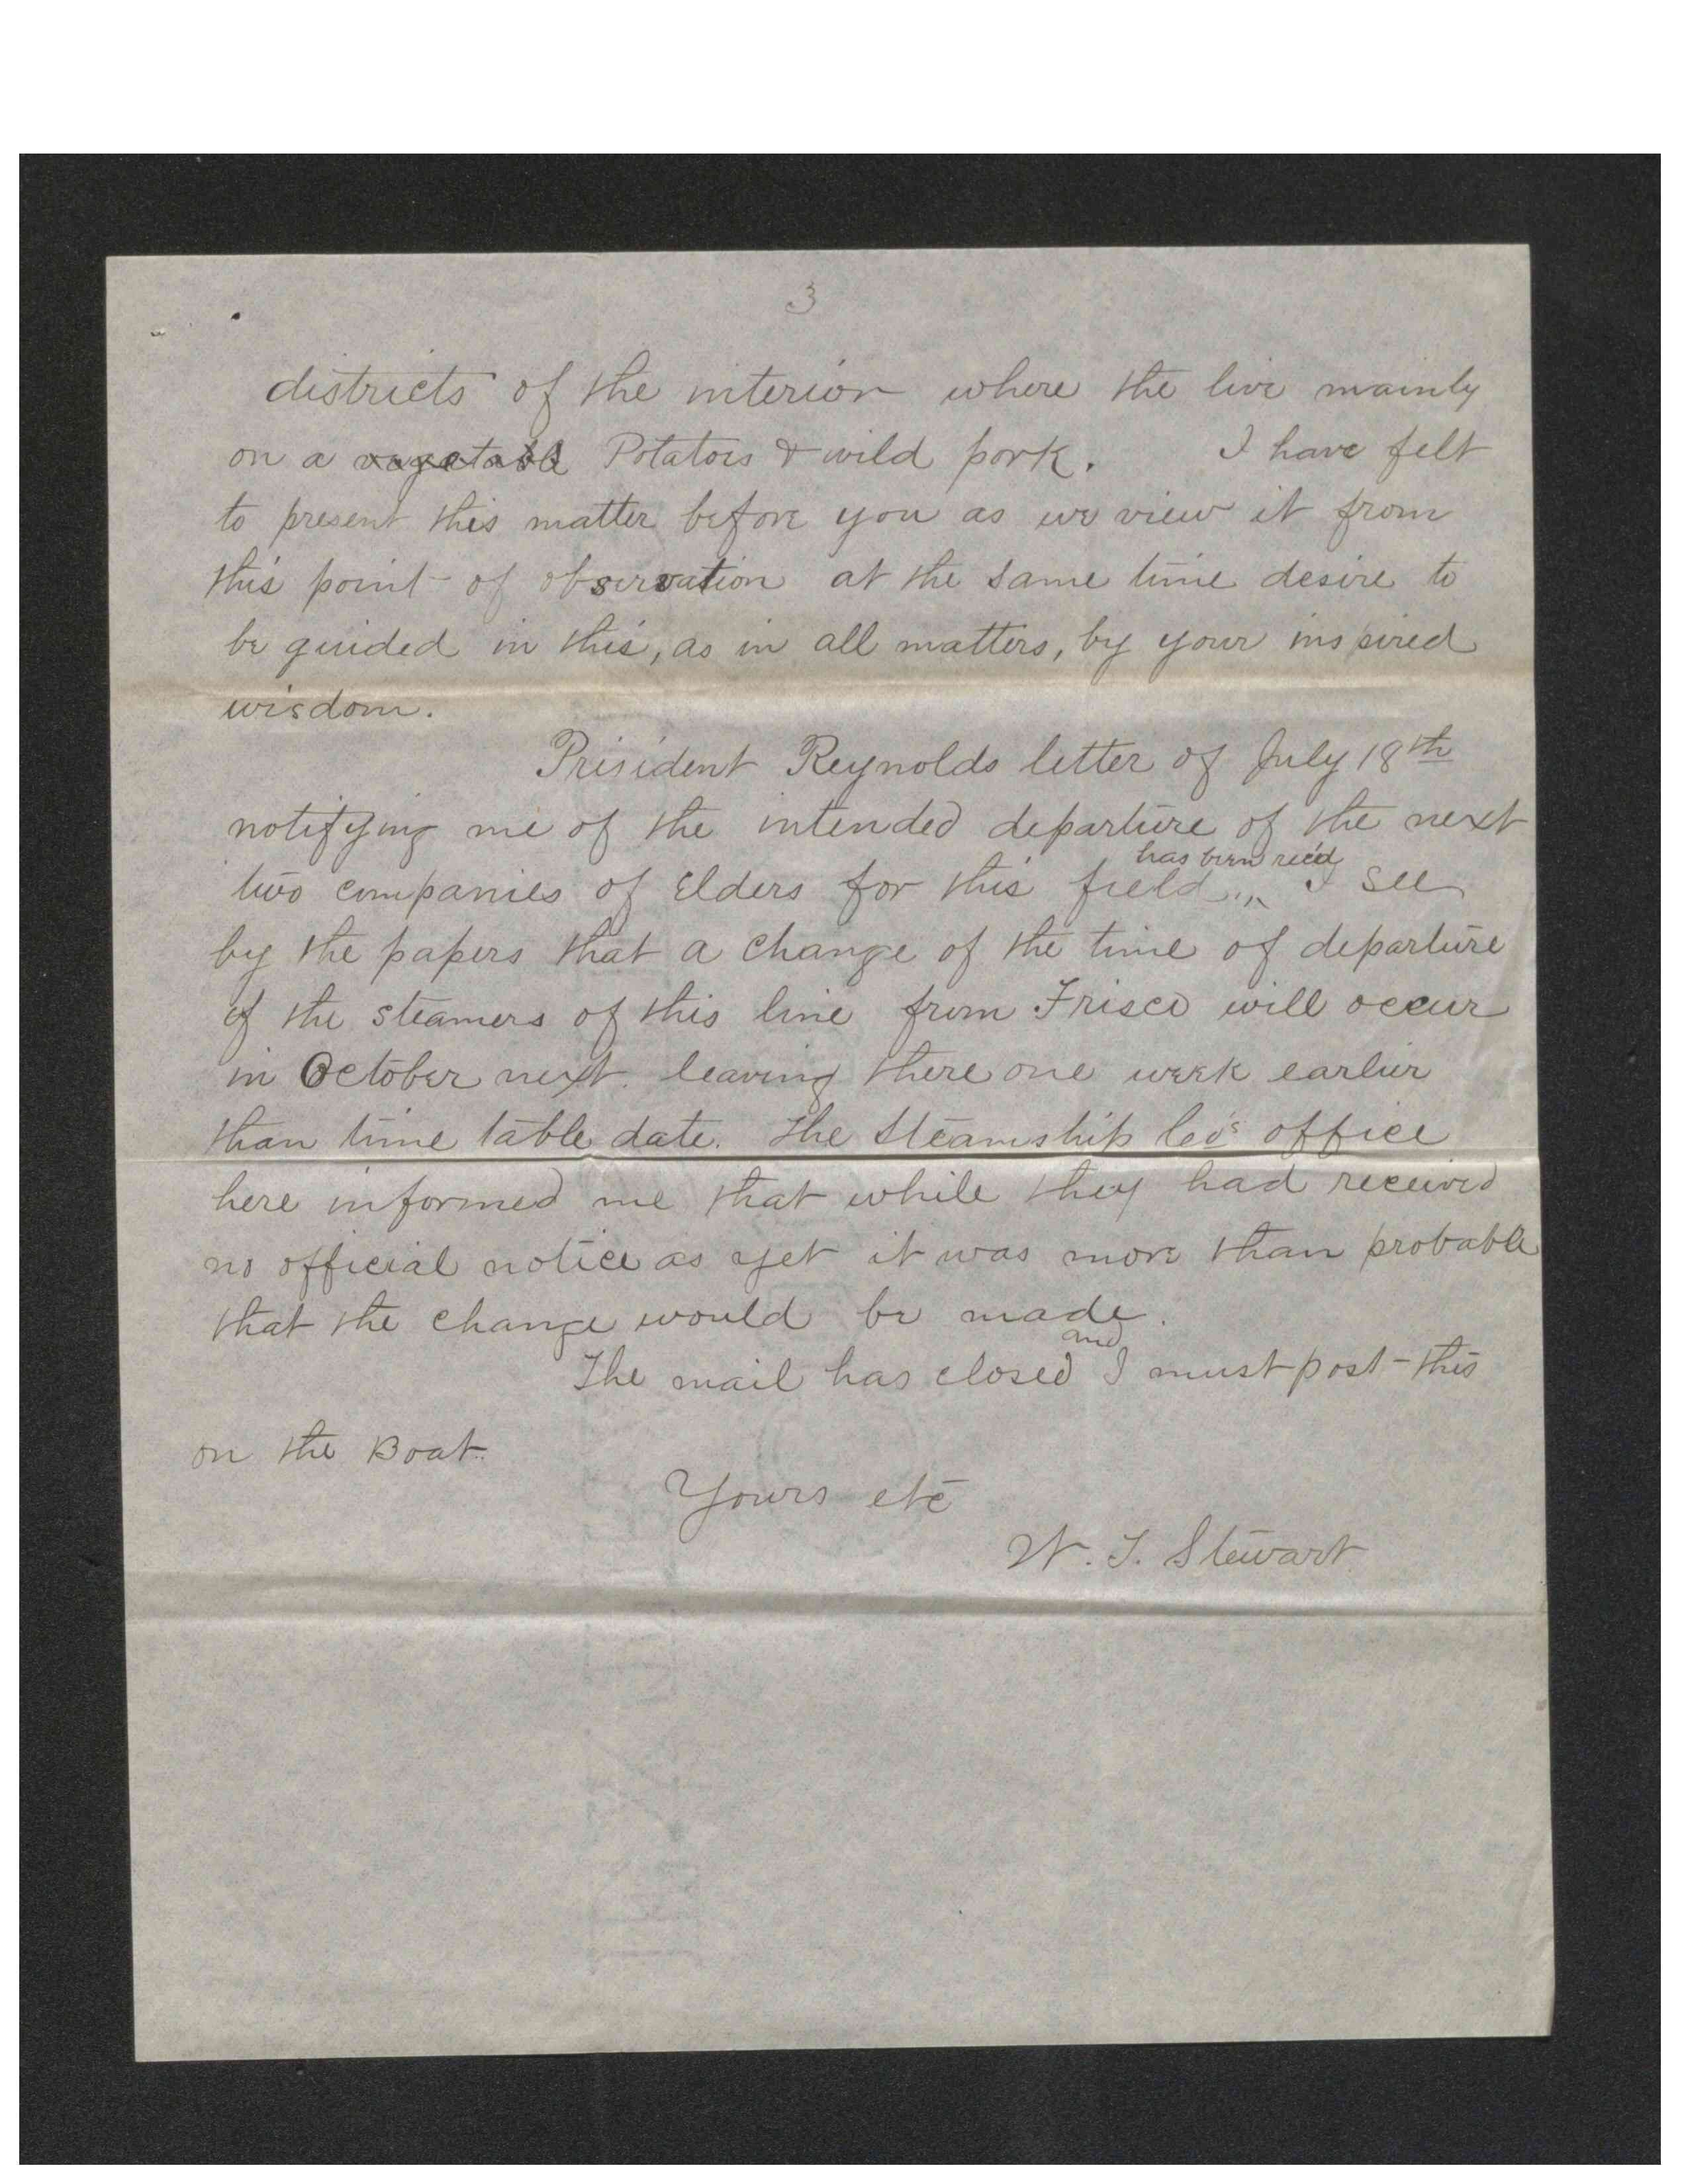 3
districts of the interior where the live mainly
on a vegetable Potatoes & wild pork. I have felt
to present this matter before you as we view it from
this point of observation at the same time desire to
be guided in this, as in all matters, by your inspired
wisdom.
President Reynolds letter of July 18th
notifying me of the intended departure of the next
has been rec'd
two companies of Elders for this field,, I see
by the papers that a change of the time of departure
of the steamers of this line from Frisco will occur
in October next. leaving there one week earlier
than time table date. The Steamship Co's office
here informed me that while they had received
no official notice as yet it was more than probable
that the change would be made.
and
The mail has closed I must post this
on the Boat.
Yours etc
W. T. Stewart